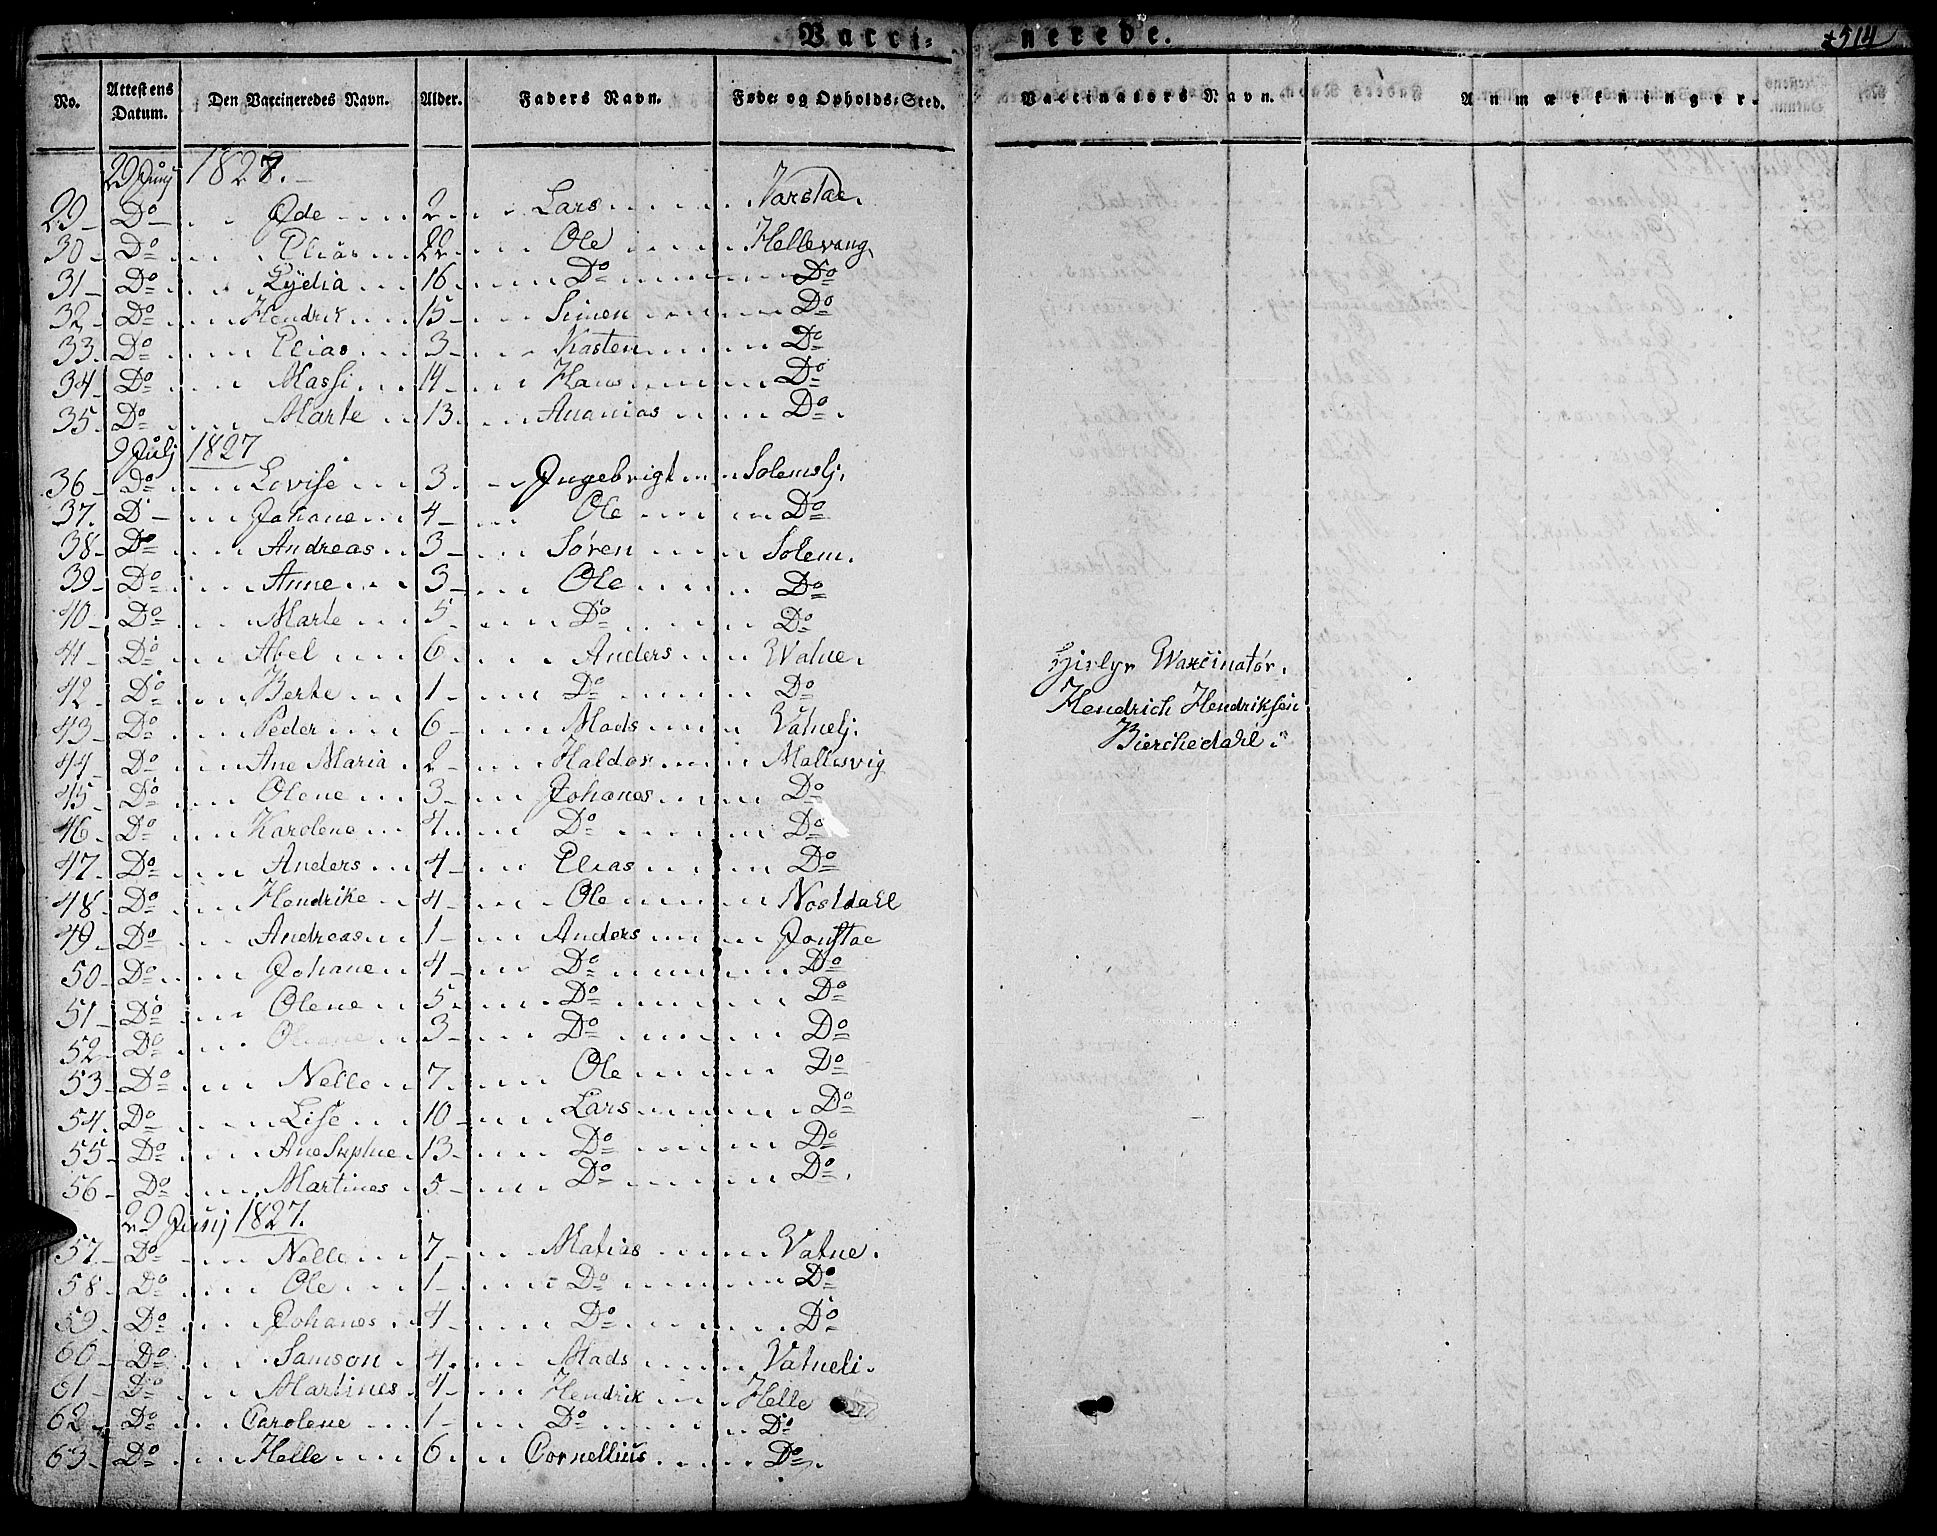 Vacci-nerede. 514
No. Attestens Datum. Den Vaccineredes Navn. Alder. Faders Navn. Føde- og Opholds-Sted. Vaccinators Navn. Anmærkninger.
29 Junij 1827.
29 Do Ode 2 Lars Varstae.
30 Do Elias 22 Ole Hellevang
31 Do Lydia 16 Do Do
32 Do Hendrik 15 Simon Do
33 Do Elias 3 Kasten Do
34 Do Massi 14 Hans Do
35 Do Marte 13 Ananias Do
9 Julj 1827
36 Do Lovise 3 Ingebrigt Solemslj.
37 Do Johane 4 Ole Do
38 Do Andreas 3 Søren Solem.
39 Do Anne 3 Ole Do
40 Do Marte 5 Do Do
41 Do Abel 6 Anders Watne.
42 Do Berte 1 Do Do
43 Do Peder 6 Mads Vatnelj.
44 Do Ane Maria 2 Haldor Mallesvig
45 Do Olene 3 Johanes Do
46 Do Karolene 4 Do Do
47 Do Anders 4 Elias Do
48 Do Hendrike 4 Ole Nostdahl
49 Do Andreas 1 Anders Jonstae
50 Do Johane 4 Do Do
51 Do Olene 5 Do Do
52 Do Oliane 3 Do Do
53 Do Nelle 7 Ole Do
54 Do Lise 10 Lars Do
55 Do Ane 13 Do Do
56 Do Martines 5 Do Do.
29 Junij 1827.
57 Do Nelle 7 Matias Vatne.
58 Do Ole 1 Do Do
59 Do Johanes 4 Do Do
60 Do Samson 4 Mads Vatneli.
61 Do Martines 4 Hendrik Helle
62 Do Carolene 1 Do Do
63 Do Helle 6 Cornellius Do
Waxcinatør.
Hendrich Hendriksen
Bierchedahl.